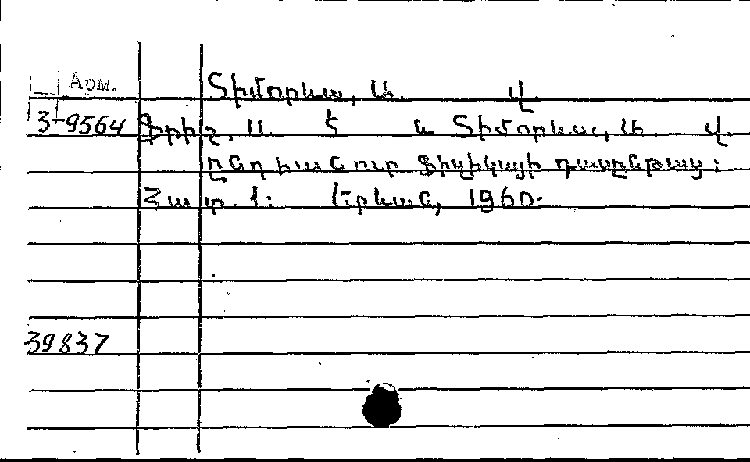 Арм. Տիմորևա, Ա. վ
3-9564 Ֆրիշ, Ս. Է և Տիմորևա, Ա. վ
ընդհանուր ֆիզիկայի դասընթաց:
Հատ. 1: Երևան, 1960.
39837